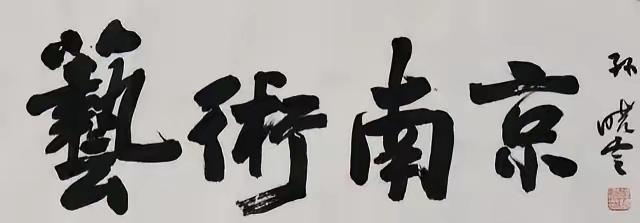 藝術南京
孙晓云